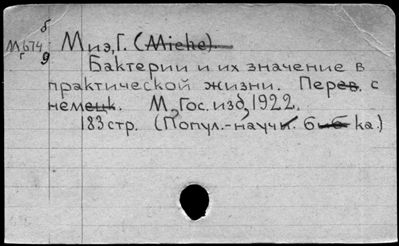 б
М674 Миэ, Г. (Miehe)
г 9 Бактерии и их значение в
практической жизни. Перев. с
немецк. М, Гос. изд, 1922.
183 стр. (Попул.-научн. б-б-ка.)